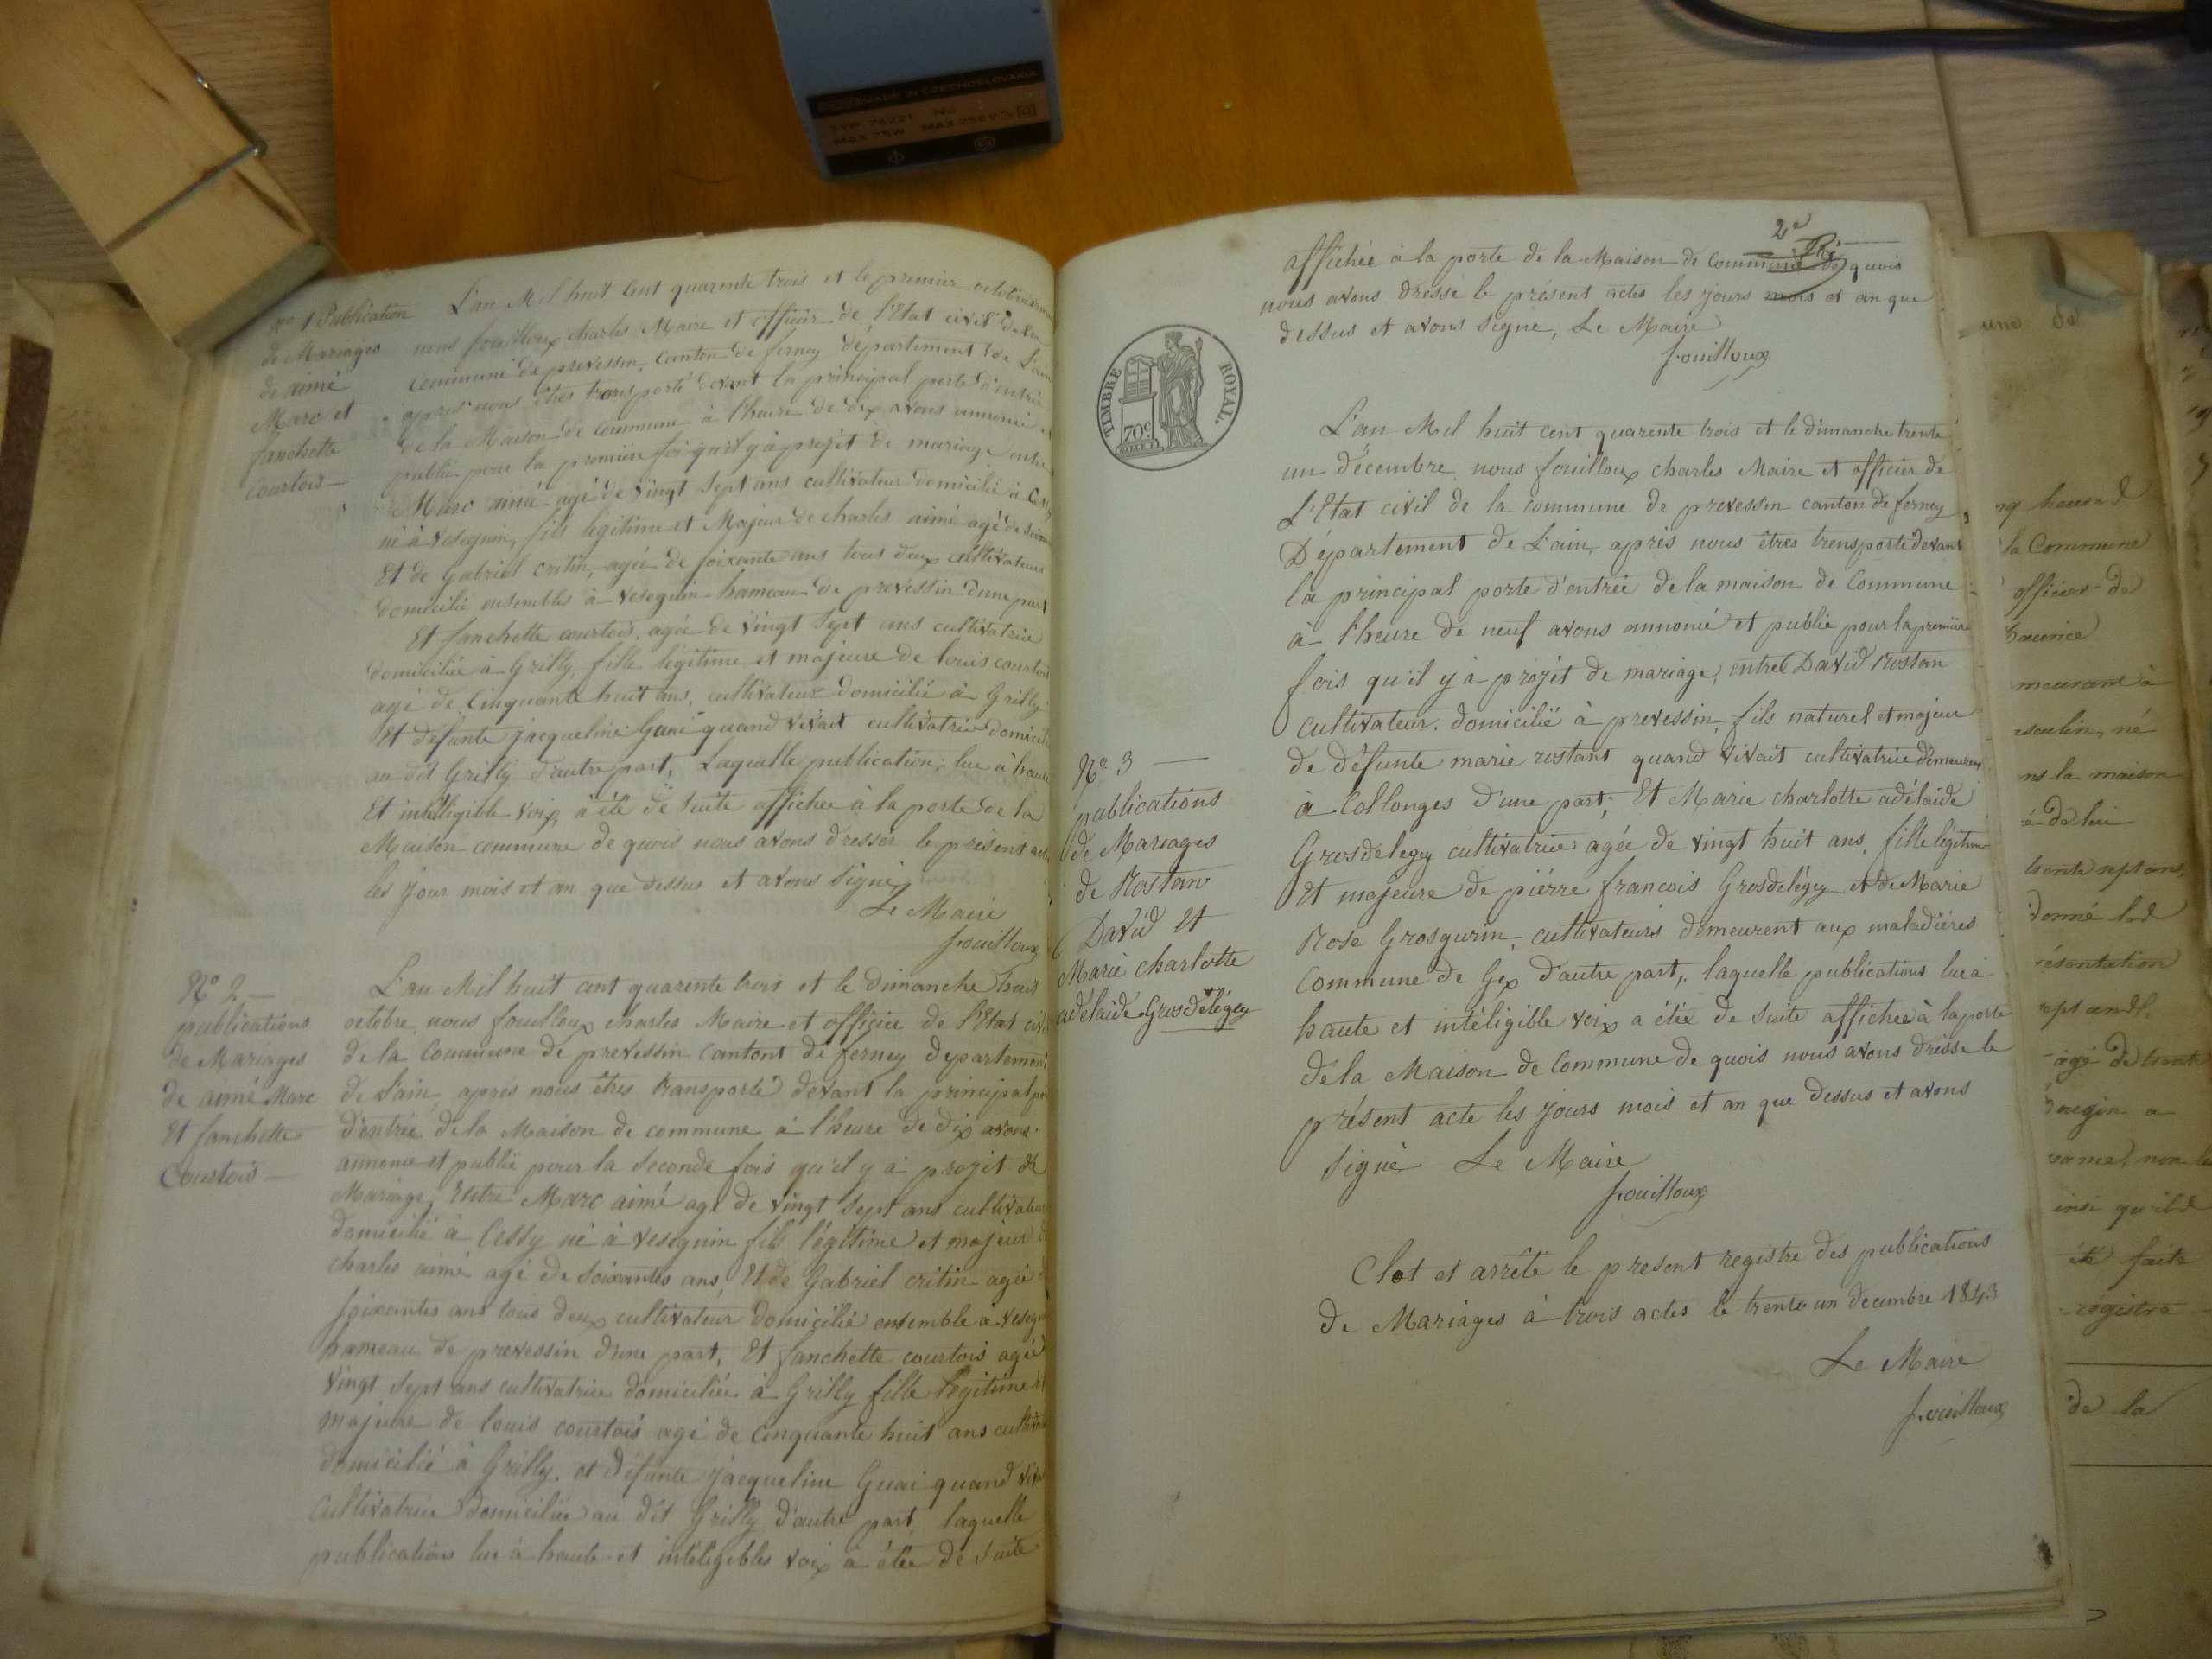 No 1 Publication
de Mariages
de aimé
Marc et
fanchette
courtois
L'an Mil huit Cent quarente trois et le premier octobre
nous fouilloux charles Maire et officier de l'Etat civil de la
commune de prevessin, Canton de ferney département de L'ain
apres nous êtres transporté devant la principal porte d'entrée
de la Maison de commune à l'heure de dix avons annoncé et
publié pour la premiere foi qu'il y à projet de mariage entre
Marc aimé agé de vingt sept ans cultivateur domicilié à Cessy
né à vesegnin, fils légitime et Majeur de charles aimé agé de
Et de Gabriel critin, agée de soixante ans tous deux cultivateurs
domicilié ensembles à vesegnin hameau de prevessin d'une part
Et fanchette courtois, agée de vingt sept ans cultivatrice
domiciliée à Grilly, fille légitime et majeure de louis courtois
agé de Cinquante huit ans, cultivateur domicilié à Grilly
Et défunte jacqueline Guai quand vivait cultivatrice domicilié
au dit Grilly d'autre part, Laquelle publication, lue à haute
Et intélligible voix, à été de suite affichée à la porte de la
Maison commune de quois nous avons dresser le présent acte
les jour mois et an que dessus et avons signé
Le Maire
fouilloux
No 2
publications
de Mariages
de aimé Marc
Et fanchette
Courtois
L'an Mil huit cent quarente trois et le dimanche huit
octobre nous fouilloux charles Maire et officier de l'Etat civil
de la Commune de prevessin cantont de ferney departement
de L'ain, aprés nous êtres transporté devant la principal
d'entrée de la Maison de commune à l'heure de dix avons
annoncé et publié pour la seconde fois qu'il y à projet de
Mariage, Entre Marc aimé agé de vingt sept ans cultivateur
domicilié à Cessy né à vesegnin fils légitime et majeur de
charles aimé agé de soixantes ans, Et de Gabriel critin agée
soixantes ans tous deux cultivateur domicilié ensemble à
hameau de prevessin d'une part, Et fanchette courtois agée
vingt sept ans cultivatrice domiciliée à Grilly fille légitime
majeure de louis courtois agé de Cinquante huit ans
domicilié à Grilly, et défunte jacqueline Guai quand
cultivatrice domiciliée au dit Grilly d'autre part laquelle
publications lue à haute et intéligibles voix à étée de suite
2e
affichée à la porte de la Maison de commune de quois
nous avons dressé le présent actes les jours mois et an que
dessus et avons signé, Le Maire
fouilloux
TIMBRE ROYAL.
70c
L'an Mil huit cent quarente trois et le dimanche trente
un décembre nous fouilloux charles Maire et officier de
L'Etat civil de la commune de prevessin canton de ferney,
Département de L'ain, aprés nous êtres transporté devant
la principal porte d'entrée de la maison de Commune
à l'heure de neuf avons annoncé et publié pour la premiere
fois qu'il y à projet de mariage, entre David rostan
cultivateur. domicilié à prevessin, fils naturel et majeur
de défunte marie rostant quand vivait cultivatrice demeurent
à Collonges d'une part; Et Marie charlotte adélaide
Grosdelegey cultivatrice agée de vingt huit ans, fille légitime
Et majeure de piérre francois Grosdelégey et de Marie
Rose Grosgurin, cultivateurs demeurent aux maladiéres
commune de Gex d'autre part, laquelle publications lue à
haute et intéligible voix a étée de suite affichée à la porte
de la Maison de Commune de quois nous avons dréssé le
présent acte les jours mois et an que dessus et avons
signé Le Maire
fouilloux
No 3
publications
de Mariages
de Rostan
David Et
Marie charlotte
adélaide Grosdelégey
Clot et arrêté le present registre des publications
de Mariages à trois actes le trente un decembre 1843
Le Maire
fouilloux
une de
la Commune
officier de
meurant à
ns la maison
trente sept ans,
donné
ésentation
agé de trent
faite
registre
de la